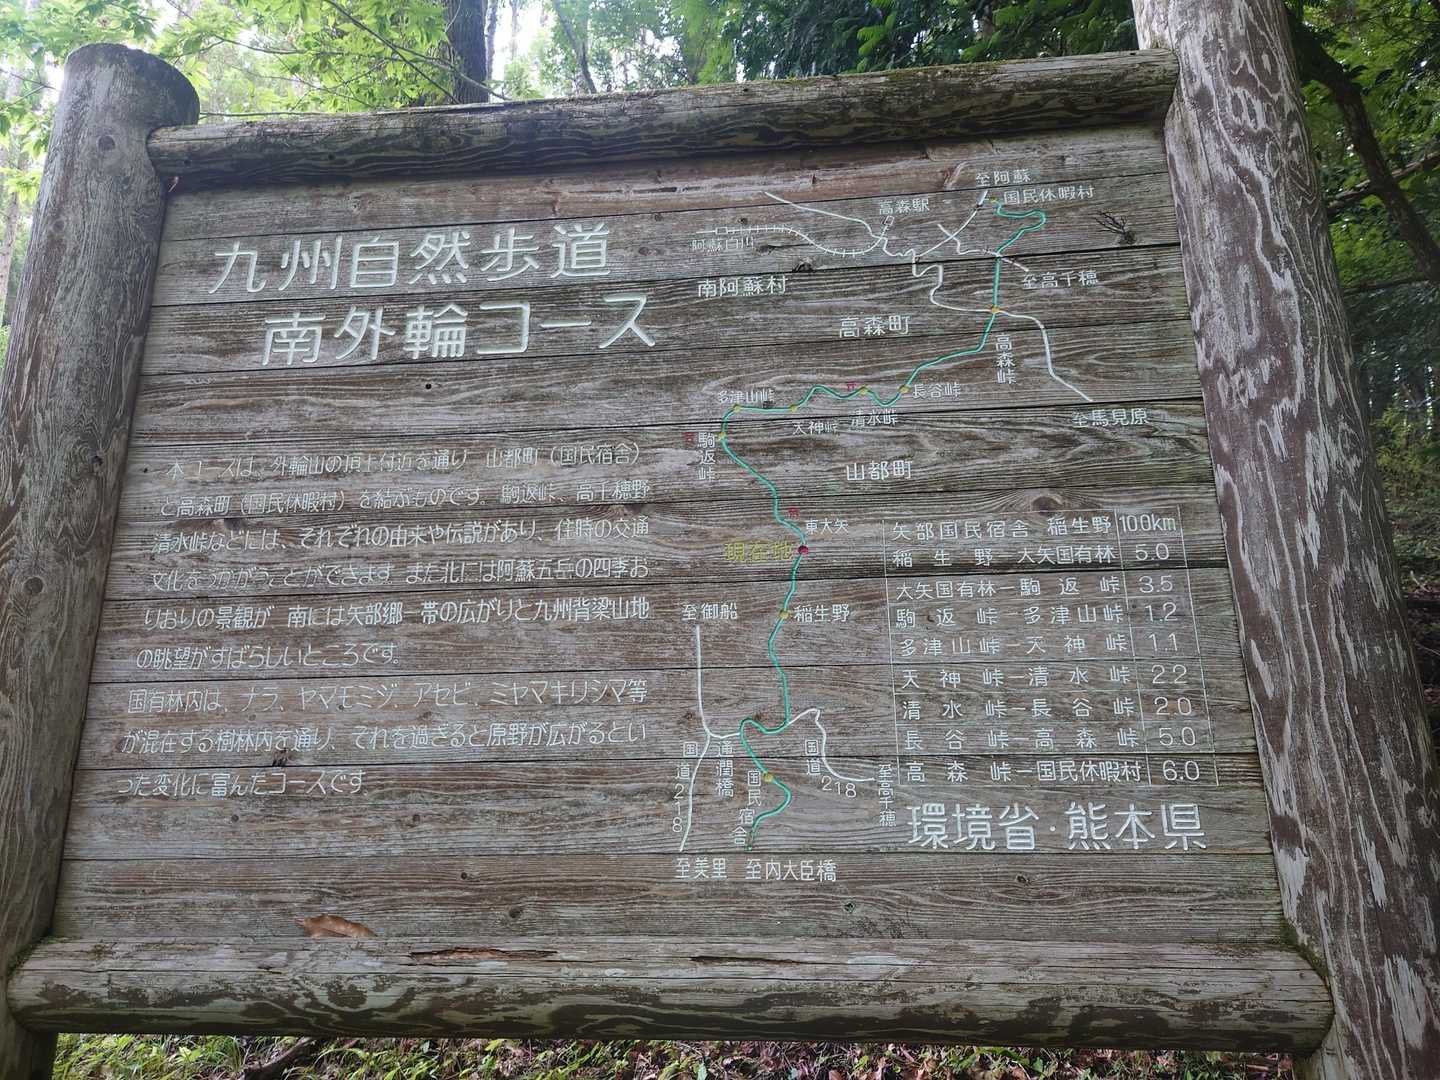 九州自然歩道
南外輪コース
本コースは、外輪山の頂上付近を通り 山都町（国民宿舎）
と高森町（国民休暇村）を結ぶものです。駒返峠、高千穂野
清水峠などには、それぞれの由来や伝説があり、住時の交通
文化をうかがうことができます また北には阿蘇五岳の四季お
りおりの景観が 南には矢部郷一帯の広がりと九州背梁山地
の眺望がすばらしいところです。
国有林内は、ナラ、ヤマモミジ、アセビ、ミヤマキリシマ等
が混在する樹林内を通り、それを過ぎると原野が広がるとい
った変化に富んだコースです
至阿蘇
国民休暇村
高森駅
阿蘇白川
至高千穂
南阿蘇村
高森町
高森峠
長谷峠
多津山峠
清水峠
天神峠
至馬見原
駒返峠
山都町
東大矢
現在地
至御船
稲生野
国道218
通潤橋
国民宿舎
国道218
至高千穂
至美里
至内大臣橋
矢部国民宿舎 稲生野 10.0km
稲生野－大矢国有林 5.0
大矢国有林－駒返峠 3.5
駒返峠 多津山峠 1.2
多津山峠－天神峠 1.1
天神峠－清水峠 2.2
清水峠－長谷峠 2.0
長谷峠－高森峠 5.0
高森峠－国民休暇村 6.0
環境省・熊本県